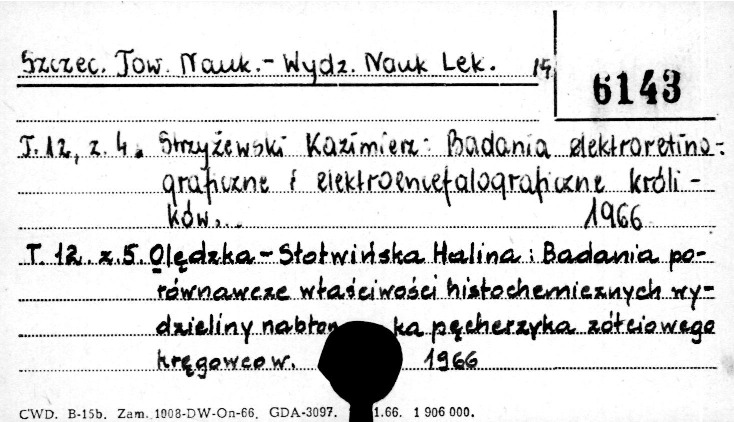 Szczec. Tow. Nauk. - Wydz. Nauk Lek. 15
6143
T. 12, z. 4. Strzyżewski Kazimierz: Badania elektroretino-
graficzne i elektroencefalograficzne króli-
ków... 1966
T. 12. z. 5. Olędzka - Słotwińska Halina: Badania po-
równawcze właściwości histochemicznych wy-
dzieliny nabłon ka pęcherzyka żółciowego
kręgowcow. 1966
CWD. B-15b. Zam. 1008-DW-On-66. GDA-3097. 1.66. 1 906 000.